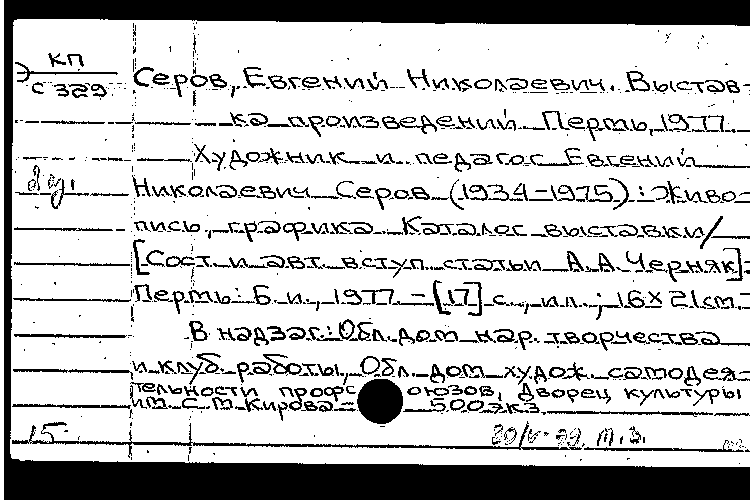 КП
Э
С 329
Серов, Евгений Николаевич. Выстав-
ка произведений. Пермь, 1977.
Художник и педагог Евгений
Николаевич Серов (1934-1975): Живо-
пись, графика. Каталог выставки/
[Сост. и авт. вступ. статьи А.А. Черняк].
Пермь: Б.и., 1977. - [17] с., ил.; 16×21см.-
В надзаг.: Обл. дом нар. творчества
и клуб. работы, Обл. дом худож. самодея-
тельности профсоюзов, Дворец культуры
им. С.М. Кирова - 500 экз.
15